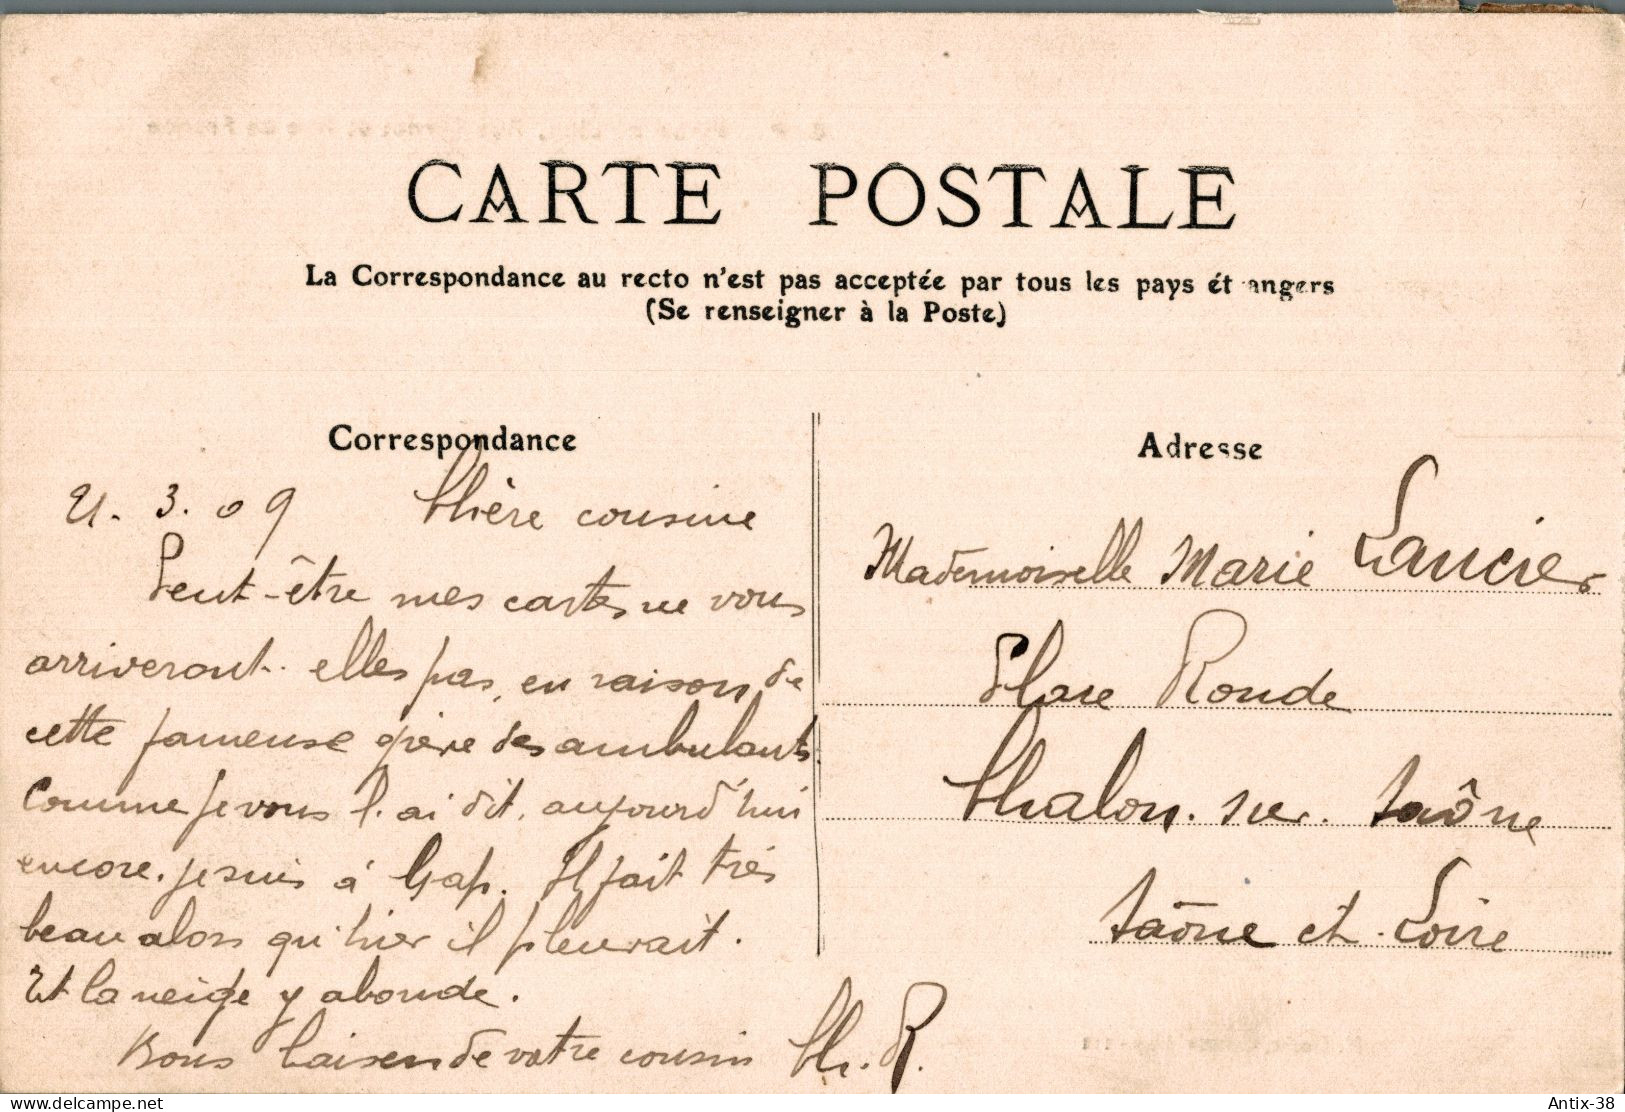 CARTE POSTALE
La Correspondance au recto n'est pas acceptée par tous les pays ét angers
(Se renseigner à la Poste)
Correspondance
21. 3. 09 Chère cousine
Peut-être mes cartes ne vous
arriveront-elles pas, en raison de
cette fameuse grève des ambulants.
Comme je vous l'ai dit, aujourd'hui
encore, je suis à Gap. Il fait très
beau alors qu'hier il pleuvait.
Et la neige y abonde.
Bons baisers de votre cousin Ch. R.
Adresse
Mademoiselle Marie Lancier
Place Ronde
Chalon-sur-Saône
Saône et Loire
delcampe.net
Antix-38